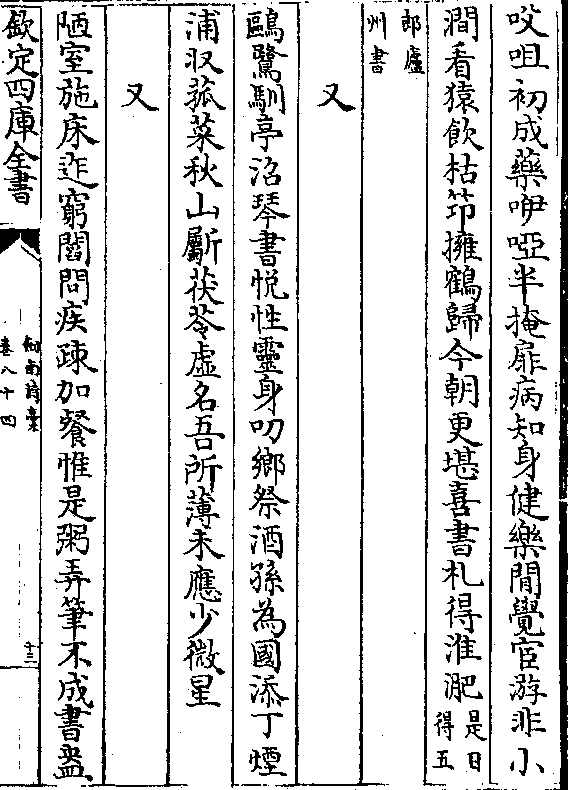 㕮咀初成藥咿啞半掩扉病知身健樂閒覺宦游非小
澗看猿飲枯笻擁鶴歸今朝更堪喜書札得淮淝是日得五
郎廬州書
又
鷗鷺馴亭沼琴書悦性靈身叨鄉祭酒孫為國添丁煙
浦収菰菜秋山斸茯苓虚名吾所薄未應少微星
又
陋室施床迮窮閻問疾疎加餐惟是粥弄筆不成書盎
欽定四庫全書
劍南詩稾
卷八十四
十三